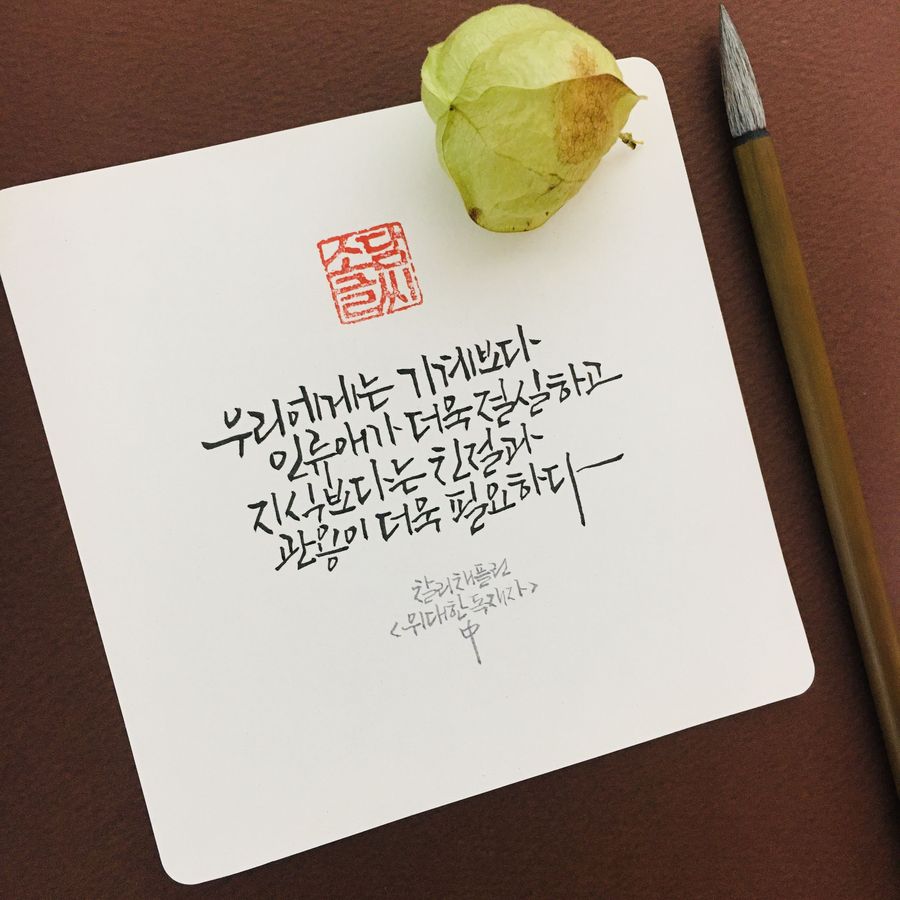 소담
글씨
우리에게는 기계보다
인류애가 더욱 절실하고
지식보다는 친절과
관용이 더욱 필요하다
찰리채플린
<위대한 독재자>
中